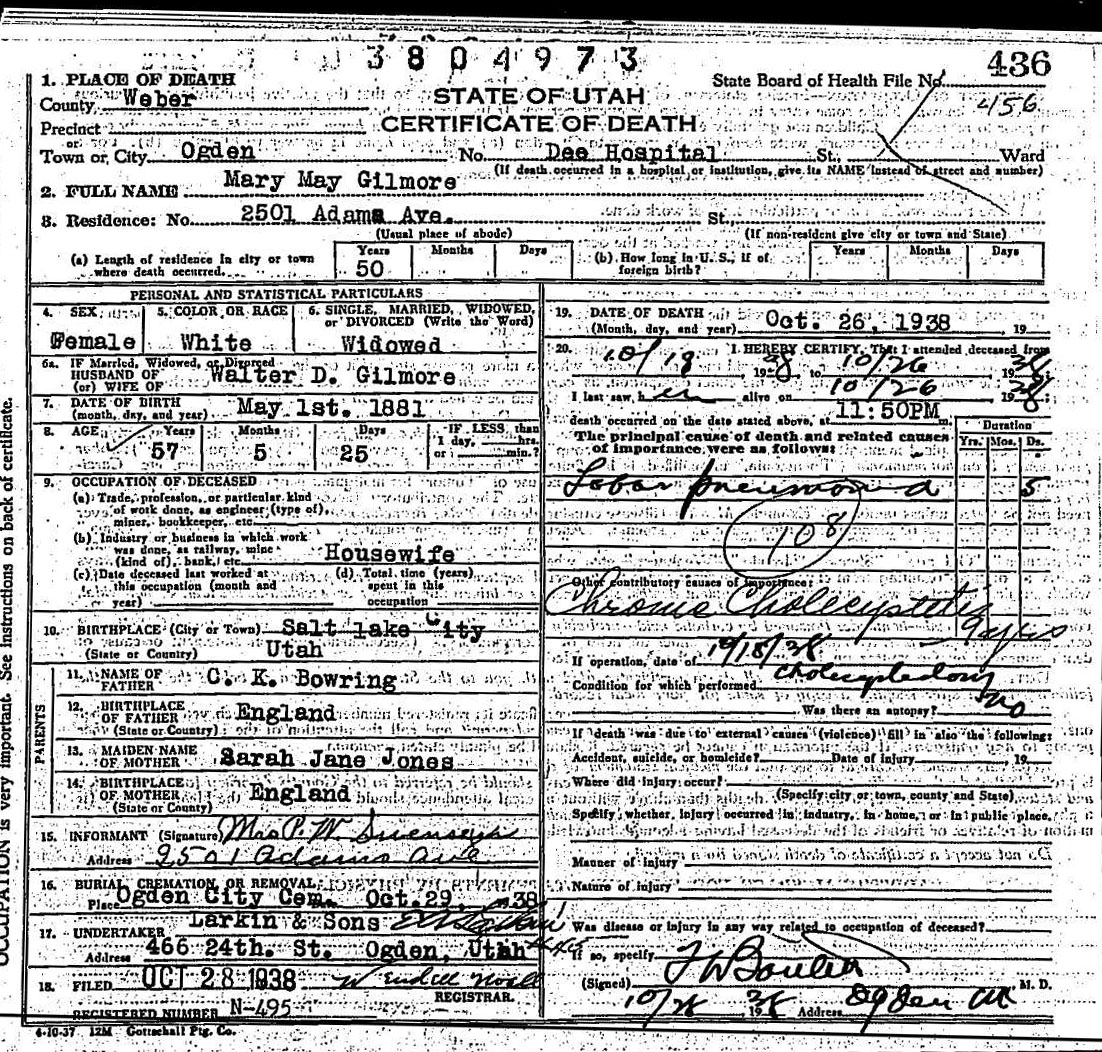 3804973
436
1. PLACE OF DEATH
State Board of Health File No.
456
County Weber
STATE OF UTAH
Precinct
CERTIFICATE OF DEATH
or
Town or City Ogden No. Dee Hospital St., Ward
(If death occurred in a hospital or institution, give its NAME instead of street and number)
2. FULL NAME Mary May Gilmore
3. Residence: No. 2501 Adams Ave. St.
(Usual place of abode) (If non-resident give city or town and State)
(a) Length of residence in city or town where death occurred. Years 50 Months Days
(b) How long in U. S., if of foreign birth? Years Months Days
PERSONAL AND STATISTICAL PARTICULARS
4. SEX Female
5. COLOR OR RACE White
6. SINGLE, MARRIED, WIDOWED, or DIVORCED (Write the Word) Widowed
6a. IF Married, Widowed, or Divorced
HUSBAND OF
(or) WIFE OF Walter D. Gilmore
7. DATE OF BIRTH
(month, day, and year) May 1st. 1881
8. AGE Years 57 Months 5 Days 25 IF LESS than 1 day, hrs. or min.?
9. OCCUPATION OF DECEASED
(a) Trade, profession, or particular kind
of work done, as engineer (type of),
miner, bookkeeper, etc.
(b) Industry or business in which work
was done, as railway, mine
(kind of), bank, etc. Housewife
(c) Date deceased last worked at
this occupation (month and
year)
(d) Total time (years)
spent in this
occupation
10. BIRTHPLACE (City or Town) Salt lake City
(State or Country) Utah
PARENTS
11. NAME OF FATHER C. K. Bowring
12. BIRTHPLACE OF FATHER England
(State or Country)
13. MAIDEN NAME OF MOTHER Sarah Jane Jones
14. BIRTHPLACE OF MOTHER England
(State or Country)
15. INFORMANT (Signature) Mrs P. W.
Address 2501 Adams Ave
16. BURIAL, CREMATION, OR REMOVAL
Place Ogden City Cem. Oct. 29, 38
17. UNDERTAKER Larkin & Sons
Address 466 24th. St. Ogden, Utah
18. FILED OCT 28 1938 Wendell Noall
REGISTRAR.
REGISTERED NUMBER N-495
6-10-37 12M Gottschall Ptg. Co.
19. DATE OF DEATH
(Month, day, and year) Oct. 26, 1938 19
20. I HEREBY CERTIFY, That I attended deceased from
10/19 1938 to 10/26 1938
I last saw h er alive on 10/26 1938
death occurred on the date stated above, at 11:50PM m.
The principal cause of death and related causes
of importance were as follows:
Duration
Yrs. Mos. Ds.
Lobar pneumonia 5
108
Other contributory causes of importance:
Chronic Cholecystitis
If operation, date of 10/18/38
Condition for which performed
Was there an autopsy? No
If death was due to external causes (violence) fill in also the following:
Accident, suicide, or homicide? Date of injury 19
Where did injury occur?
(Specify city or town, county and State)
Specify whether injury occurred in industry, in home, or in public place.
Manner of injury
Nature of injury
Was disease or injury in any way related to occupation of deceased?
If so, specify
(Signed) M. D.
10/28 1938 Address Ogden Ut
OCCUPATION is very important. See instructions on back of certificate.